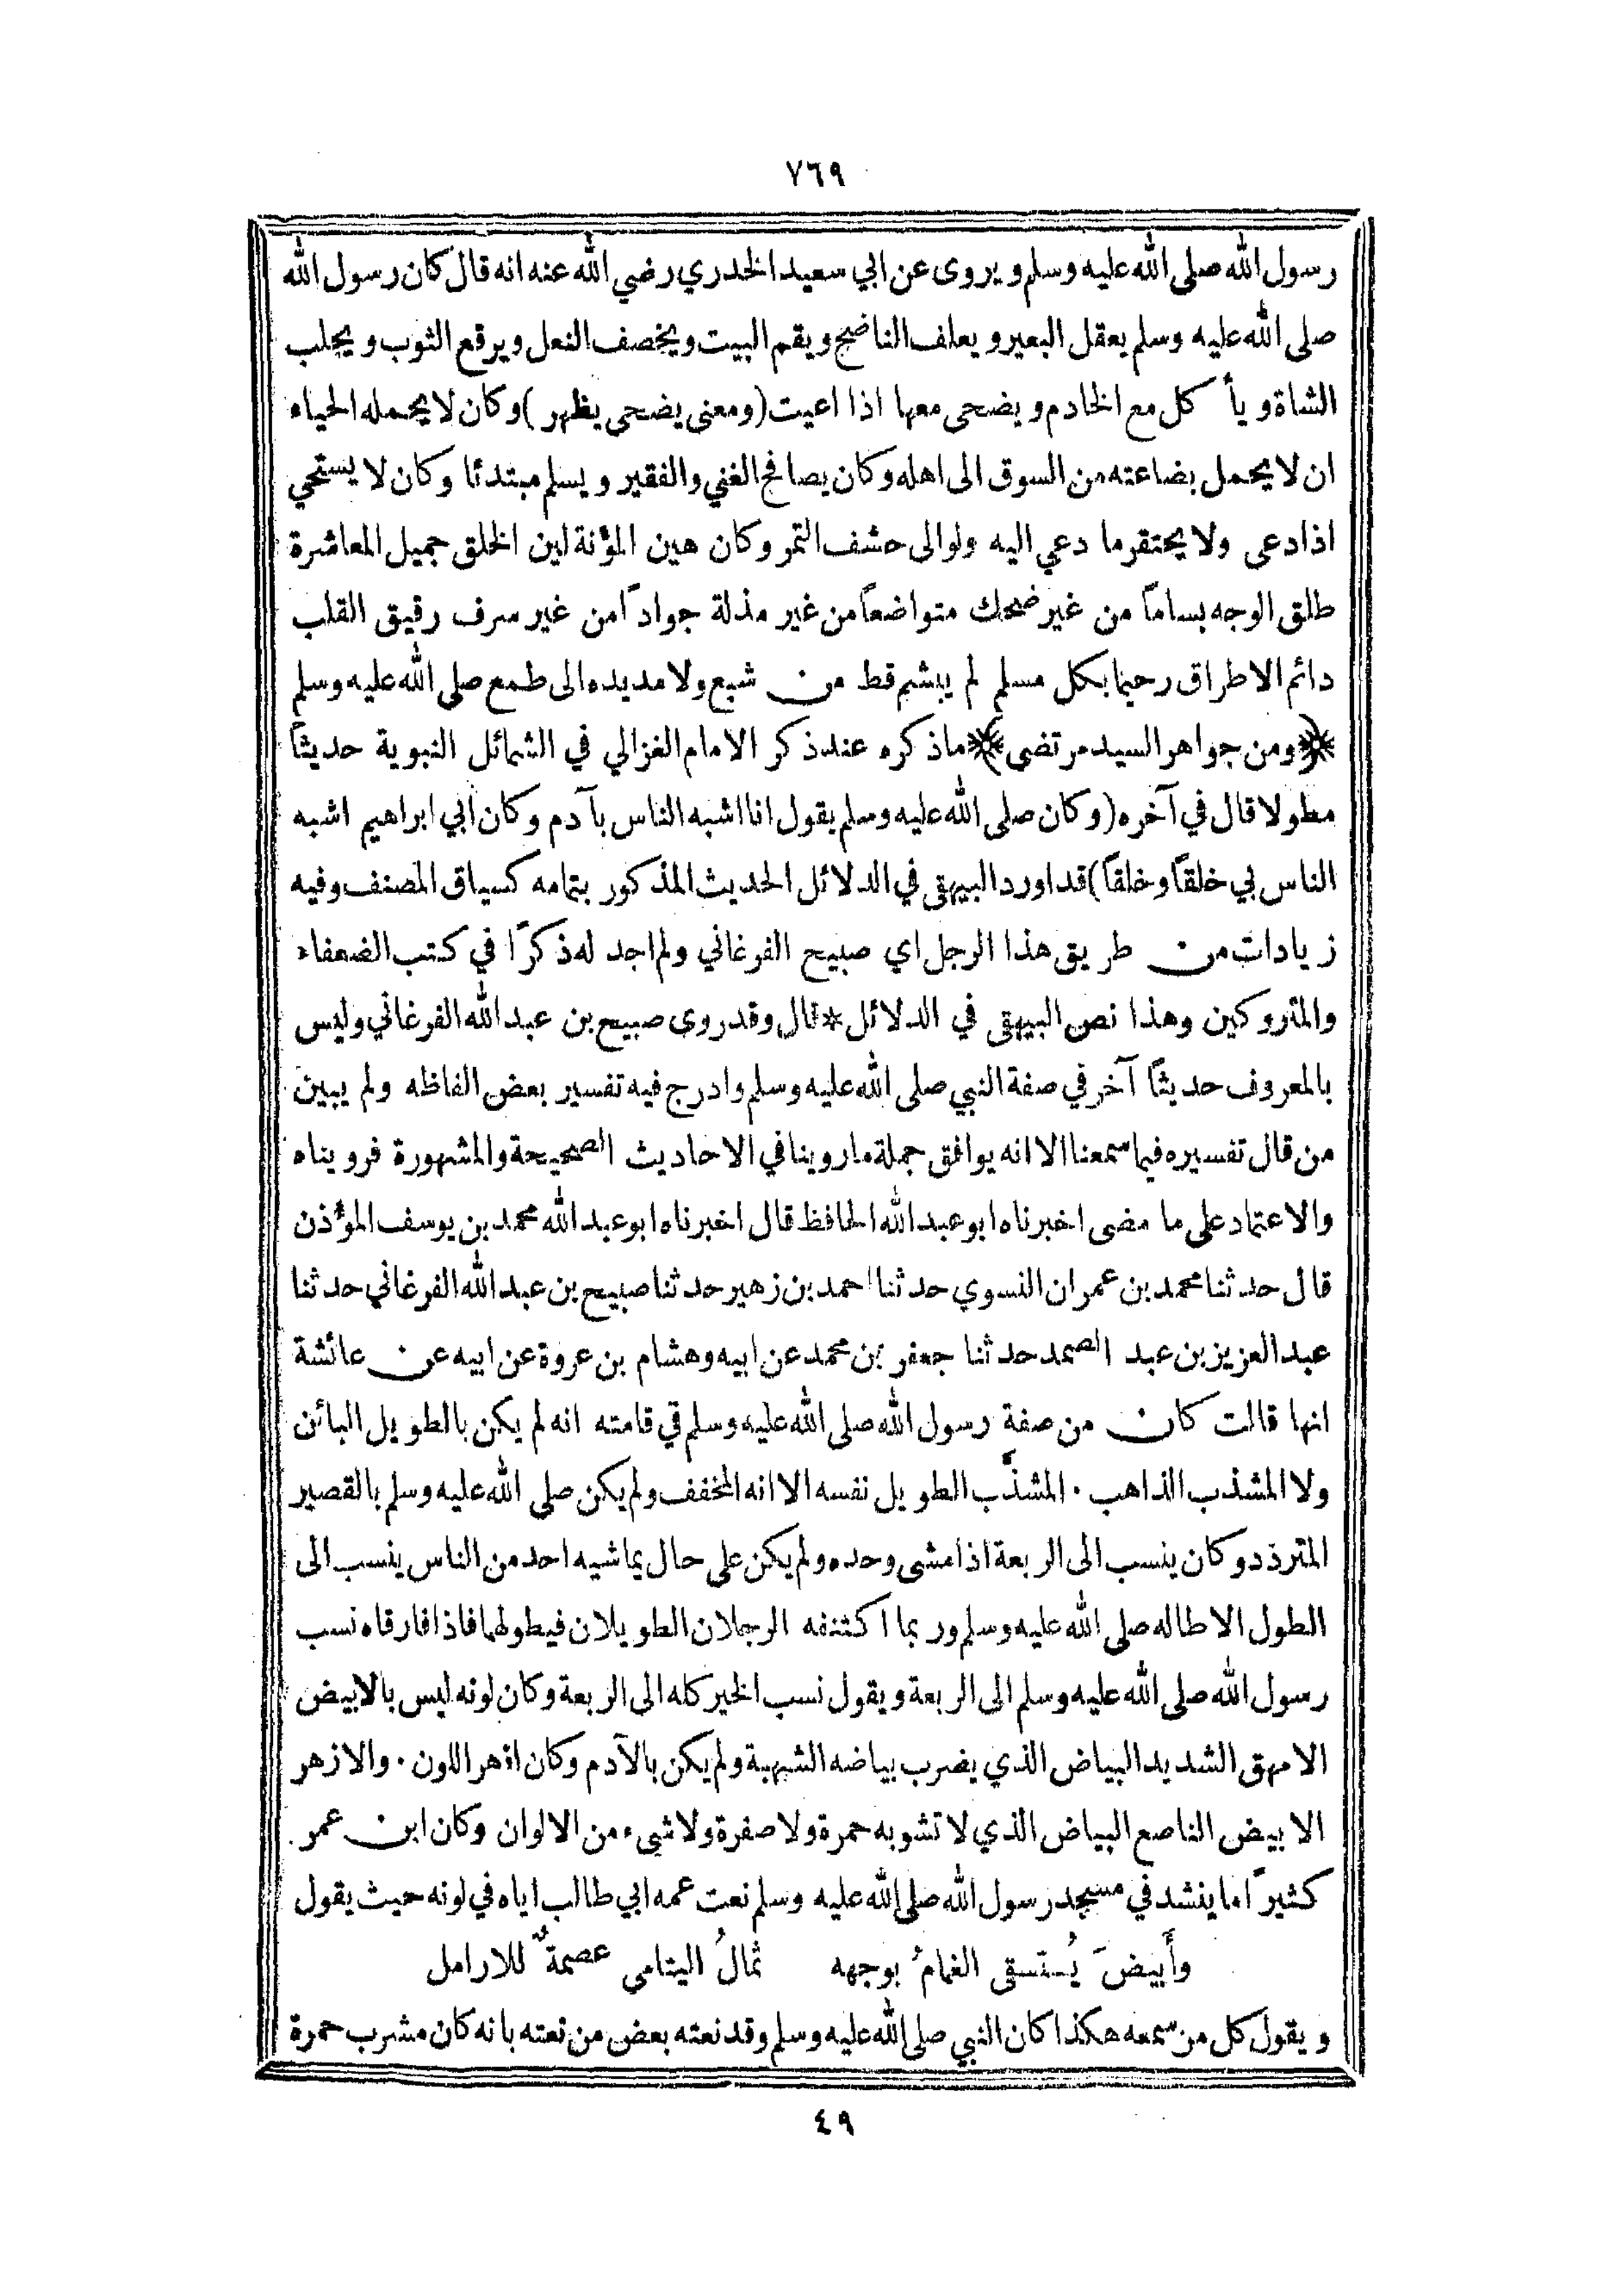 ٧٦٩
رسول الله صلى الله عليه وسلم ويروى عن ابي سعيد الخدري رضي الله عنه انه قال كان رسول الله
صلى الله عليه وسلم يعقل البعير ويعلف الناضح ويقم البيت ويخصف النعل ويرقع الثوب ويحلب
الشاة ويأكل مع الخادم ويضحى معها اذا اعيت (ومعنى يضحى يظهر) وكان لا يحمله الحياء
ان لا يحمل بضاعته من السوق الى اهله وكان يصافح الغني والفقير ويسلم مبتدئا وكان لا يستحي
اذا دعى ولا يحتقر ما دعي اليه ولو الى حشف التمر وكان هين المؤنة لين الخلق جميل المعاشرة
طلق الوجه بساماً من غير ضحك متواضعاً من غير مذلة جواداً من غير سرف رقيق القلب
دائم الاطراق رحيما بكل مسلم لم يبشم قط من شبع ولا مد يده الى طمع صلى الله عليه وسلم
﴿ومن جواهر السيد مرتضى﴾ ما ذكره عند ذكر الامام الغزالي في الشمائل النبوية حديثاً
مطولا قال في آخره (وكان صلى الله عليه وسلم يقول انا اشبه الناس بآدم وكان ابي ابراهيم اشبه
الناس بي خلقاً وخلقاً) قد اورد البيهقى في الدلائل الحديث المذكور بتمامه كسياق المصنف وفيه
زيادات من طريق هذا الرجل اي صبيح الفرغاني ولم اجد له ذكرًا في كتب الضعفاء
والمتروكين وهذا نص البيهقى في الدلائل * قال وقد روى صبيح بن عبد الله الفرغاني وليس
بالمعروف حديثاً آخر في صفة النبي صلى الله عليه وسلم وادرج فيه تفسير بعض الفاظه ولم يبين
من قال تفسيره فيما سمعنا الا انه يوافق جملة ما روينا في الاحاديث الصحيحة والمشهورة فرويناه
والاعتماد على ما مضى اخبرناه ابو عبد الله الحافظ قال اخبرناه ابو عبد الله محمد بن يوسف المؤذن
قال حدثنا محمد بن عمران النسوي حدثنا احمد بن زهير حدثنا صبيح بن عبد الله الفرغاني حدثنا
عبد العزيز بن عبد الصمد حدثنا جعفر بن محمد عن ابيه وهشام بن عروة عن ابيه عن عائشة
انها قالت كان من صفة رسول الله صلى الله عليه وسلم في قامته انه لم يكن بالطويل البائن
ولا المشذب الذاهب . المشذَّب الطويل نفسه الا انه المخفف ولم يكن صلى الله عليه وسلم بالقصير
المتردد وكان ينسب الى الربعة اذا مشى وحده ولم يكن على حال يماشيه احد من الناس ينسب الى
الطول الا طاله صلى الله عليه وسلم وربما اكتنفه الرجلان الطويلان فيطولهما فاذا فارقاه نسب
رسول الله صلى الله عليه وسلم الى الربعة ويقول نسب الخير كله الى الربعة وكان لونه ليس بالابيض
الامهق الشديد البياض الذي يضرب بياضه الشهبة ولم يكن بالآدم وكان ازهر اللون . والازهر
الابيض الناصع البياض الذي لا تشوبه حمرة ولا صفرة ولا شيء من الالوان وكان ابن عمر
كثيرًا ما ينشد في مسجد رسول الله صلى الله عليه وسلم نعت عمه ابي طالب اياه في لونه حيث يقول
وأَبيضَ يُستسقى الغمامُ بوجهه ثمالُ اليتامى عصمةٌ للارامل
ويقول كل من سمعه هكذا كان النبي صلى الله عليه وسلم وقد نعته بعض من نعته بانه كان مشرب حمرة
٤٩